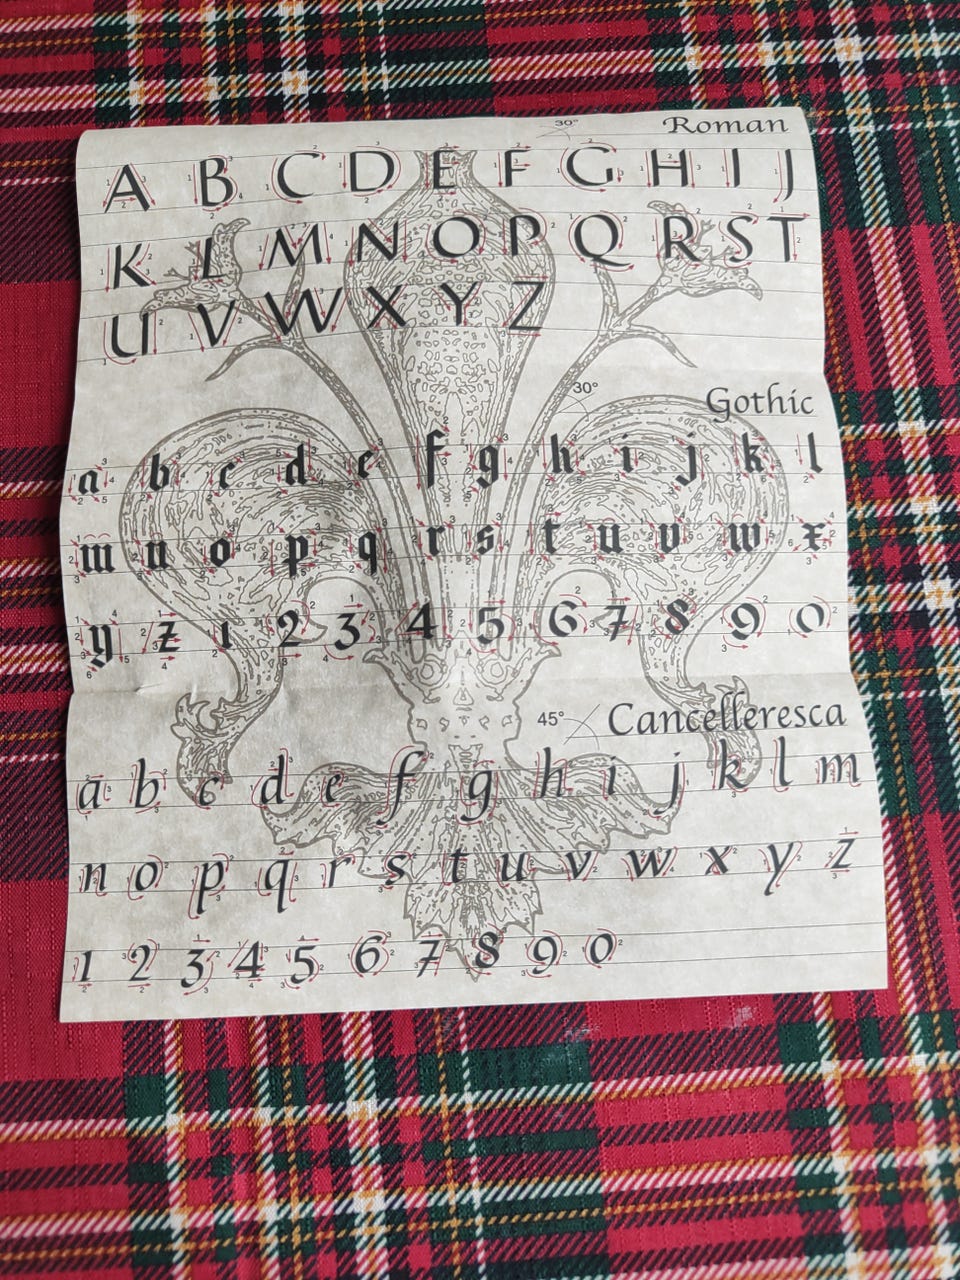 30° Roman
A B C D E F G H I J
K L M N O P Q R S T
U V W X Y Z
30° Gothic
a b c d e f g h i j k l
m n o p q r s t u v w x
y z 1 2 3 4 5 6 7 8 9 0
45° Cancelleresca
a b c d e f g h i j k l m
n o p q r s t u v w x y z
1 2 3 4 5 6 7 8 9 0